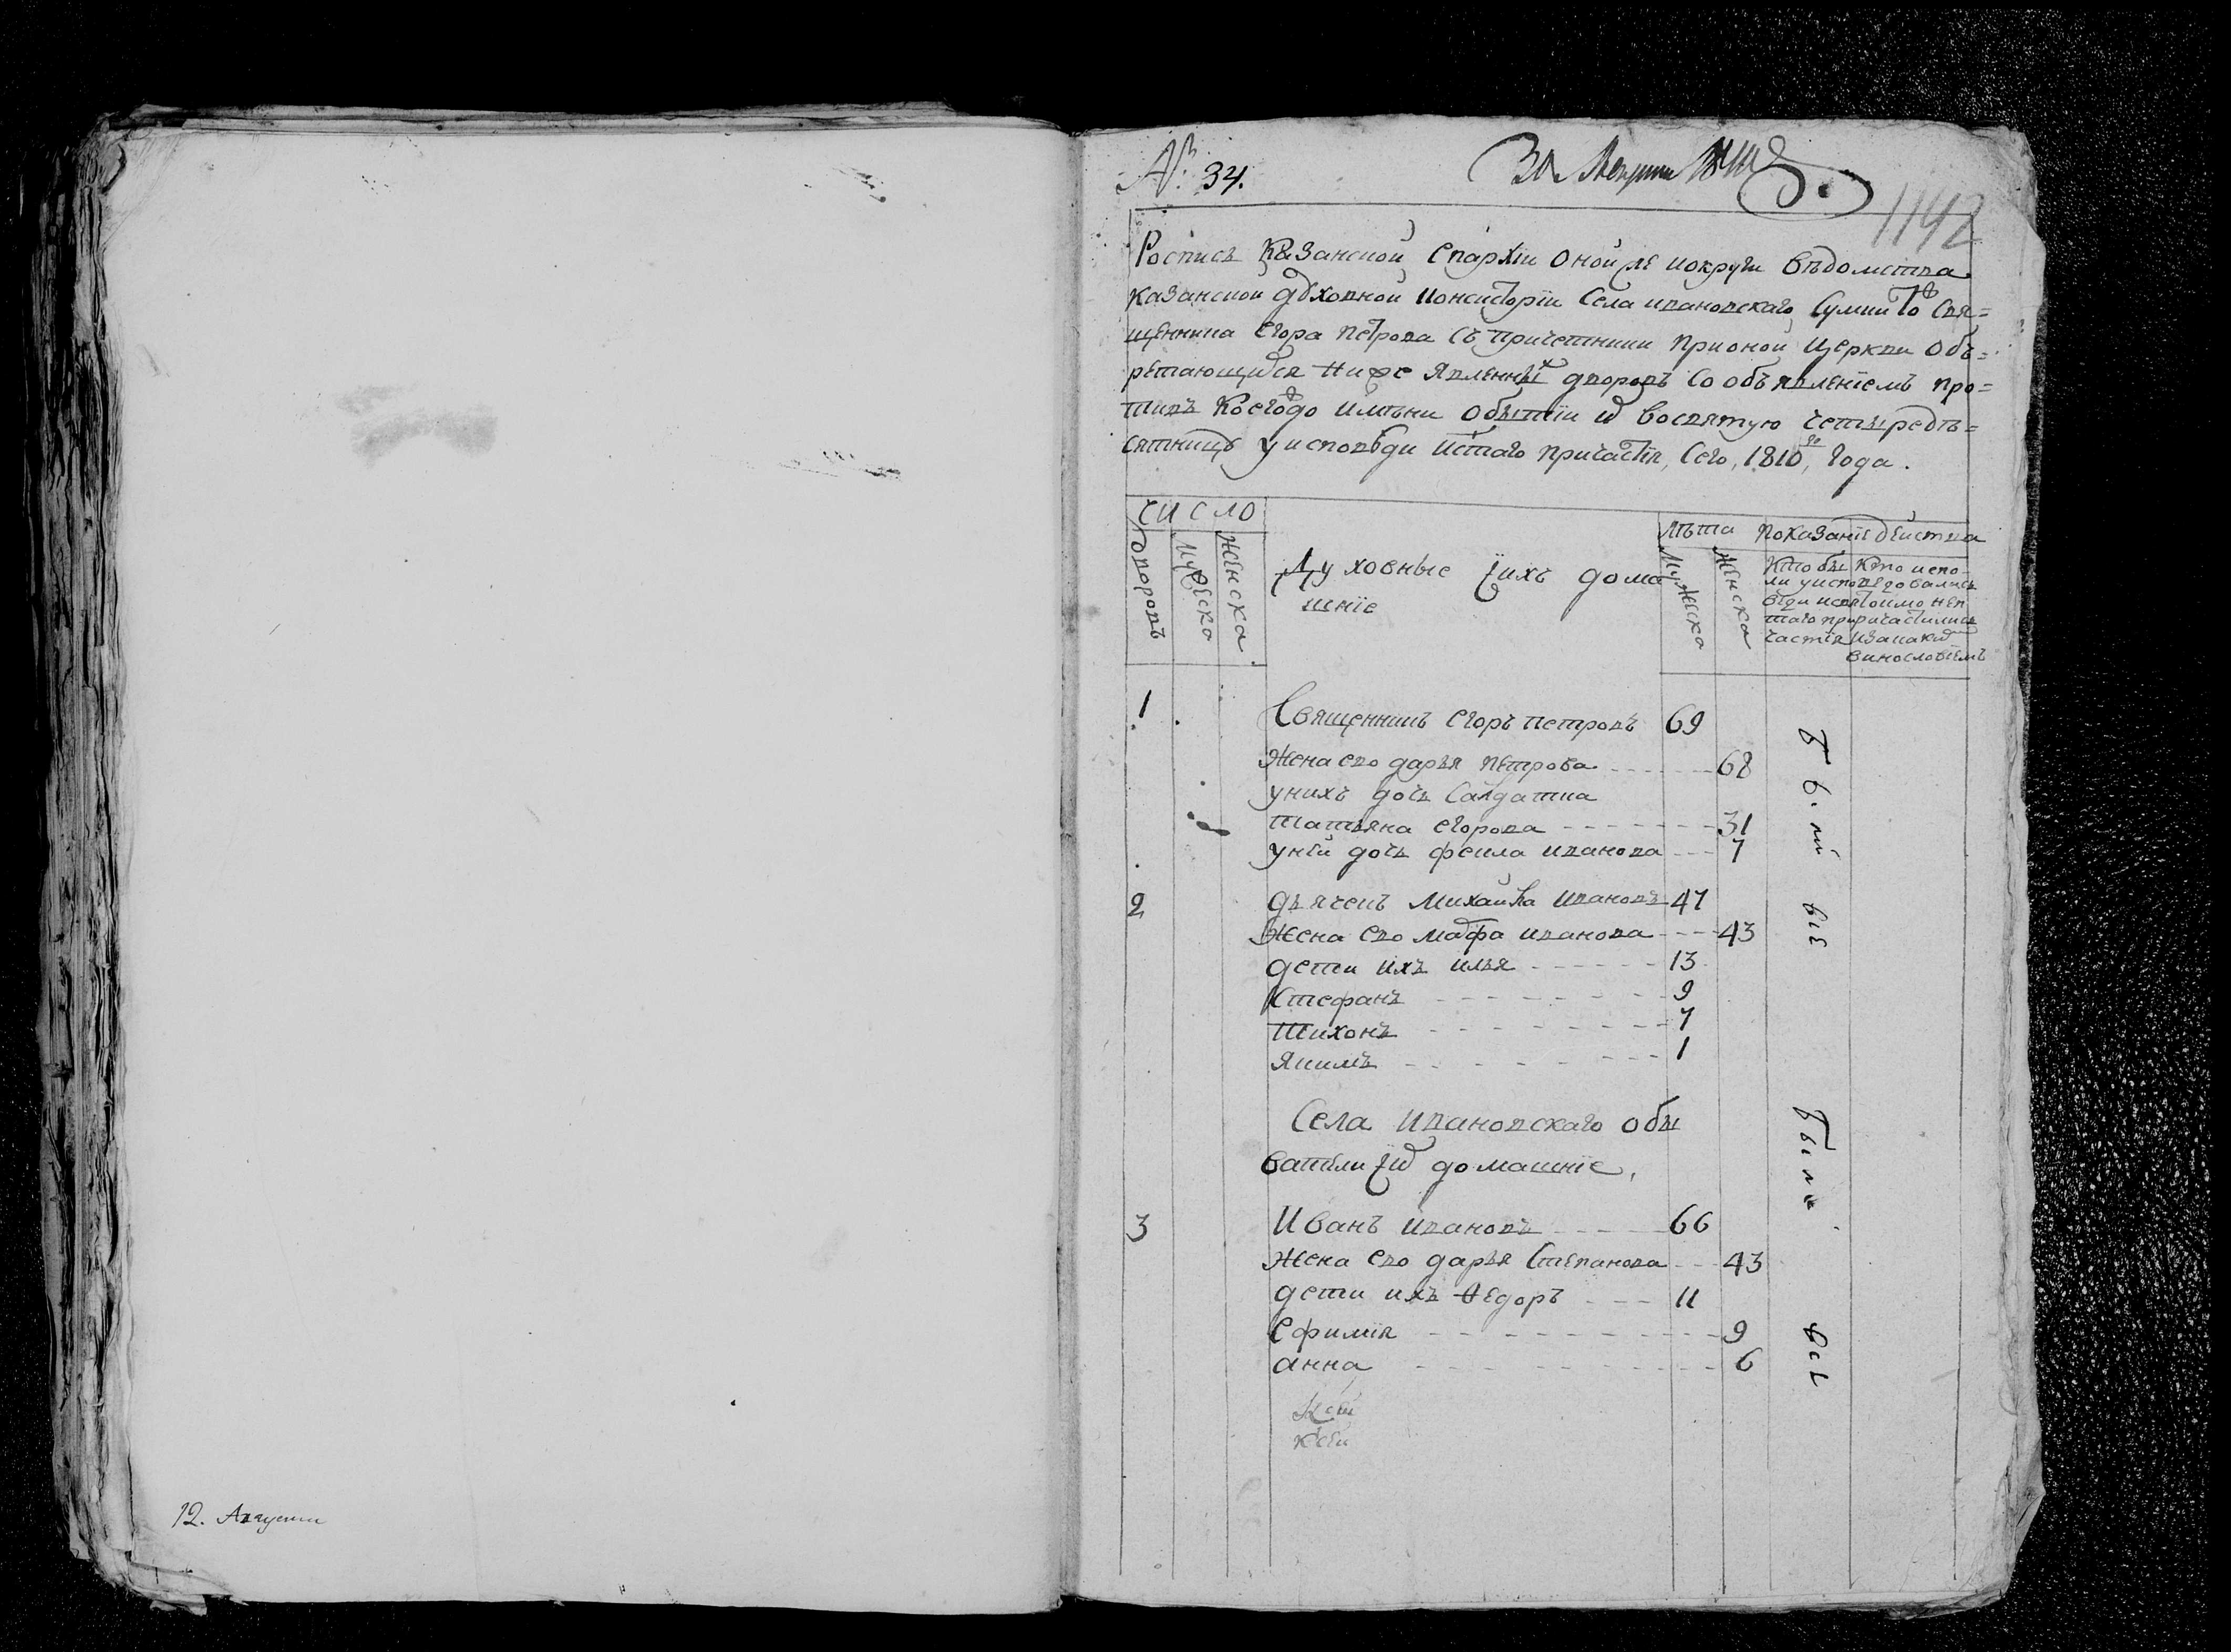 12. Августа
№: 34.
1142
Роспись Казанской Епархiи Оной же мокруги вѣдомства
Казанской духовной Консисторiи Села Ивановскаго Свя=
щенника Егора Петрова Съ Причетники При оной Церкви Обѣ=
ретающихся Ниже Явленныхъ дворовъ Со объявленiемъ про=
тивъ Коегождо имяни О бытiи ихъ Восвятую четыредѣ=
сятницу у исповѣди и стаго причастiя, Сего, 1810,го Года.
ЧИСЛО
дворовъ
Мужеска
Женска
Духовные i ихъ дома
шнiе
лѣта
Мужеска
Женска
Показанiе действа
Кто бы
ли у испо
вѣди и свя
таго при
частiя
Кто испо
ведовались
токмо неп
ричастились
и за каким
винословiемъ
1
Священникъ Егоръ Петровъ 69
Жена ево дарья Петрова 68
у нихъ дочь Салдатка
Татьяна Егорова 31
у ней дочь Фекла Иванова 7
2
дьячекъ Михайла Ивановъ 47
Жена ево Марфа Иванова 43
дети ихъ илья 13
Стефанъ 9
Тихонъ 7
Якимъ 1
Села Ивановскаго обы
ватели i их домашнiе,
3
Иванъ Ивановъ 66
Жена ево дарья Степанова 43
дети ихъ Ѳедоръ 11
Ефимiя 9
анна 6
были
всѣ